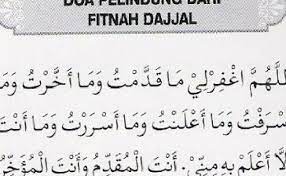 DOA PELINDUNG DARI
FITNAH DAJJAL
للَّهُمَّ اغْفِرْلِيْ مَا قَدَّمْتُ وَمَا أَخَّرْتُ وَمَا
سْرَفْتُ وَمَا أَعْلَنْتُ وَمَا أَسْرَرْتُ وَمَا أَنْتَ
أَعْلَمُ بِهِ مِنِّيْ. أَنْتَ الْمُقَدِّمُ وَأَنْتَ الْمُؤَخِّرُ